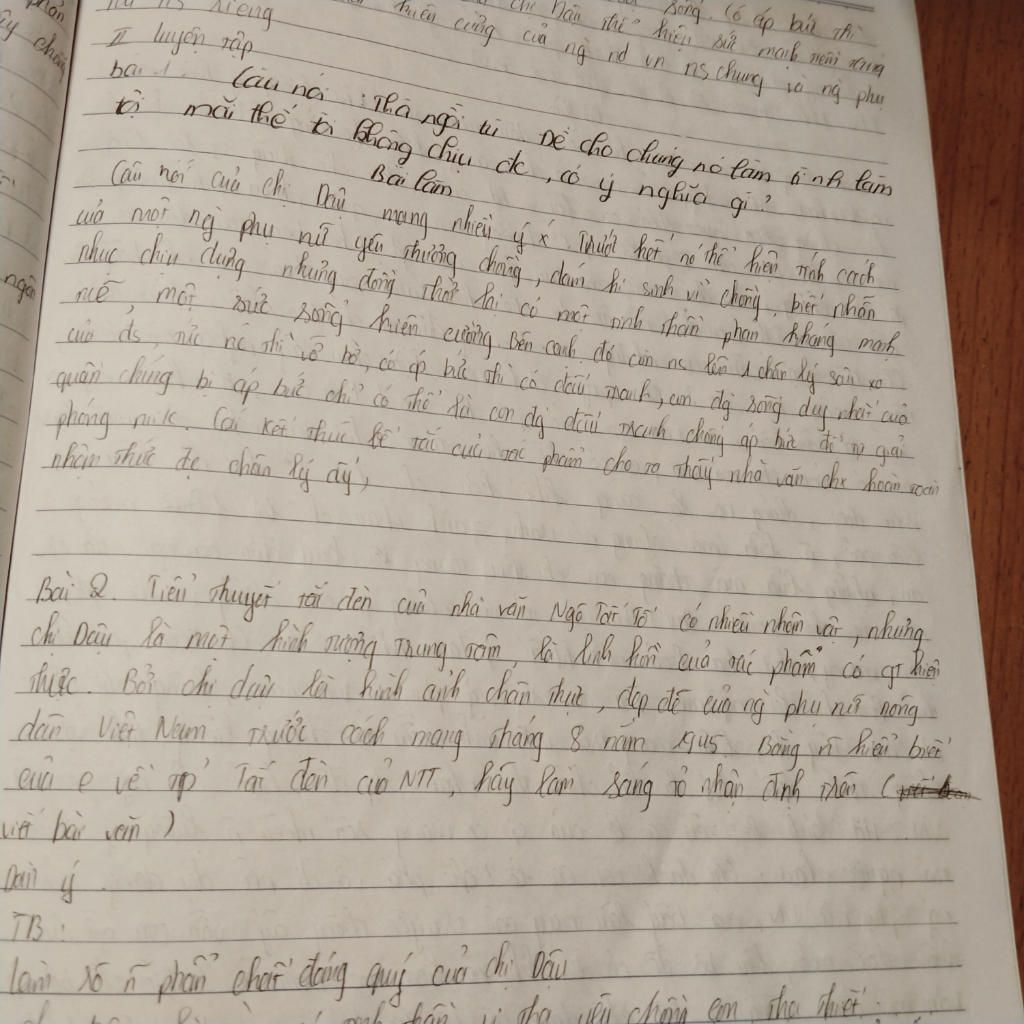 riêng
sống. Có áp bức thì
chị Dậu thể hiện sức mạnh
của ng nd vn ns chung và ng phụ
II luyện tập
bài 1. Câu nói: Thà ngồi tù. Để cho chúng nó làm tình làm
tội mãi thế tôi không chịu đc, có ý nghĩa gì?
Bài làm
Câu nói của chị Dậu mang nhiều ý x. Trước hết nó thể hiện tính cách
của một ng phụ nữ yêu thương chồng, dám hi sinh vì chồng, biết nhẫn
nhục chịu đựng nhưng đồng thời lại có một tinh thần phản kháng mạnh
mẽ, một sức sống tiềm cường Bên cạnh đó còn ns lên 1 chân lý sản xo
của đs, tức nc thì vỡ bờ, có áp bức thì có đấu tranh, con đg sống duy nhất của
quần chúng bị áp bức chỉ có thể là con đg đấu tranh chống áp bức để tự giải
phóng mik. Cái kết thúc bế tắc của tác phẩm cho ta thấy nhà văn chx hoàn toàn
nhận thức đc chân lý ấy,
Bài 2. Tiểu thuyết tắt đèn của nhà văn Ngô Tất Tố có nhiều nhân vật, nhưng
chị Dậu là một hình tượng trung tâm, là linh hồn của tác phẩm có gt hiện
thực. Bởi chị dậu là hình ảnh chân thực, đẹp đẽ của ng phụ nữ nông
dân Việt Nam trước cách mạng tháng 8 năm 1945 Bằng n hiểu biết
của e về tp Tắt đèn củ NTT, hãy làm sáng tỏ nhận định trên (
viết bài văn)
Dàn ý
TB:
làm rõ n phẩm chất đáng quý của chị Dậu
yêu chồng con tha thiết